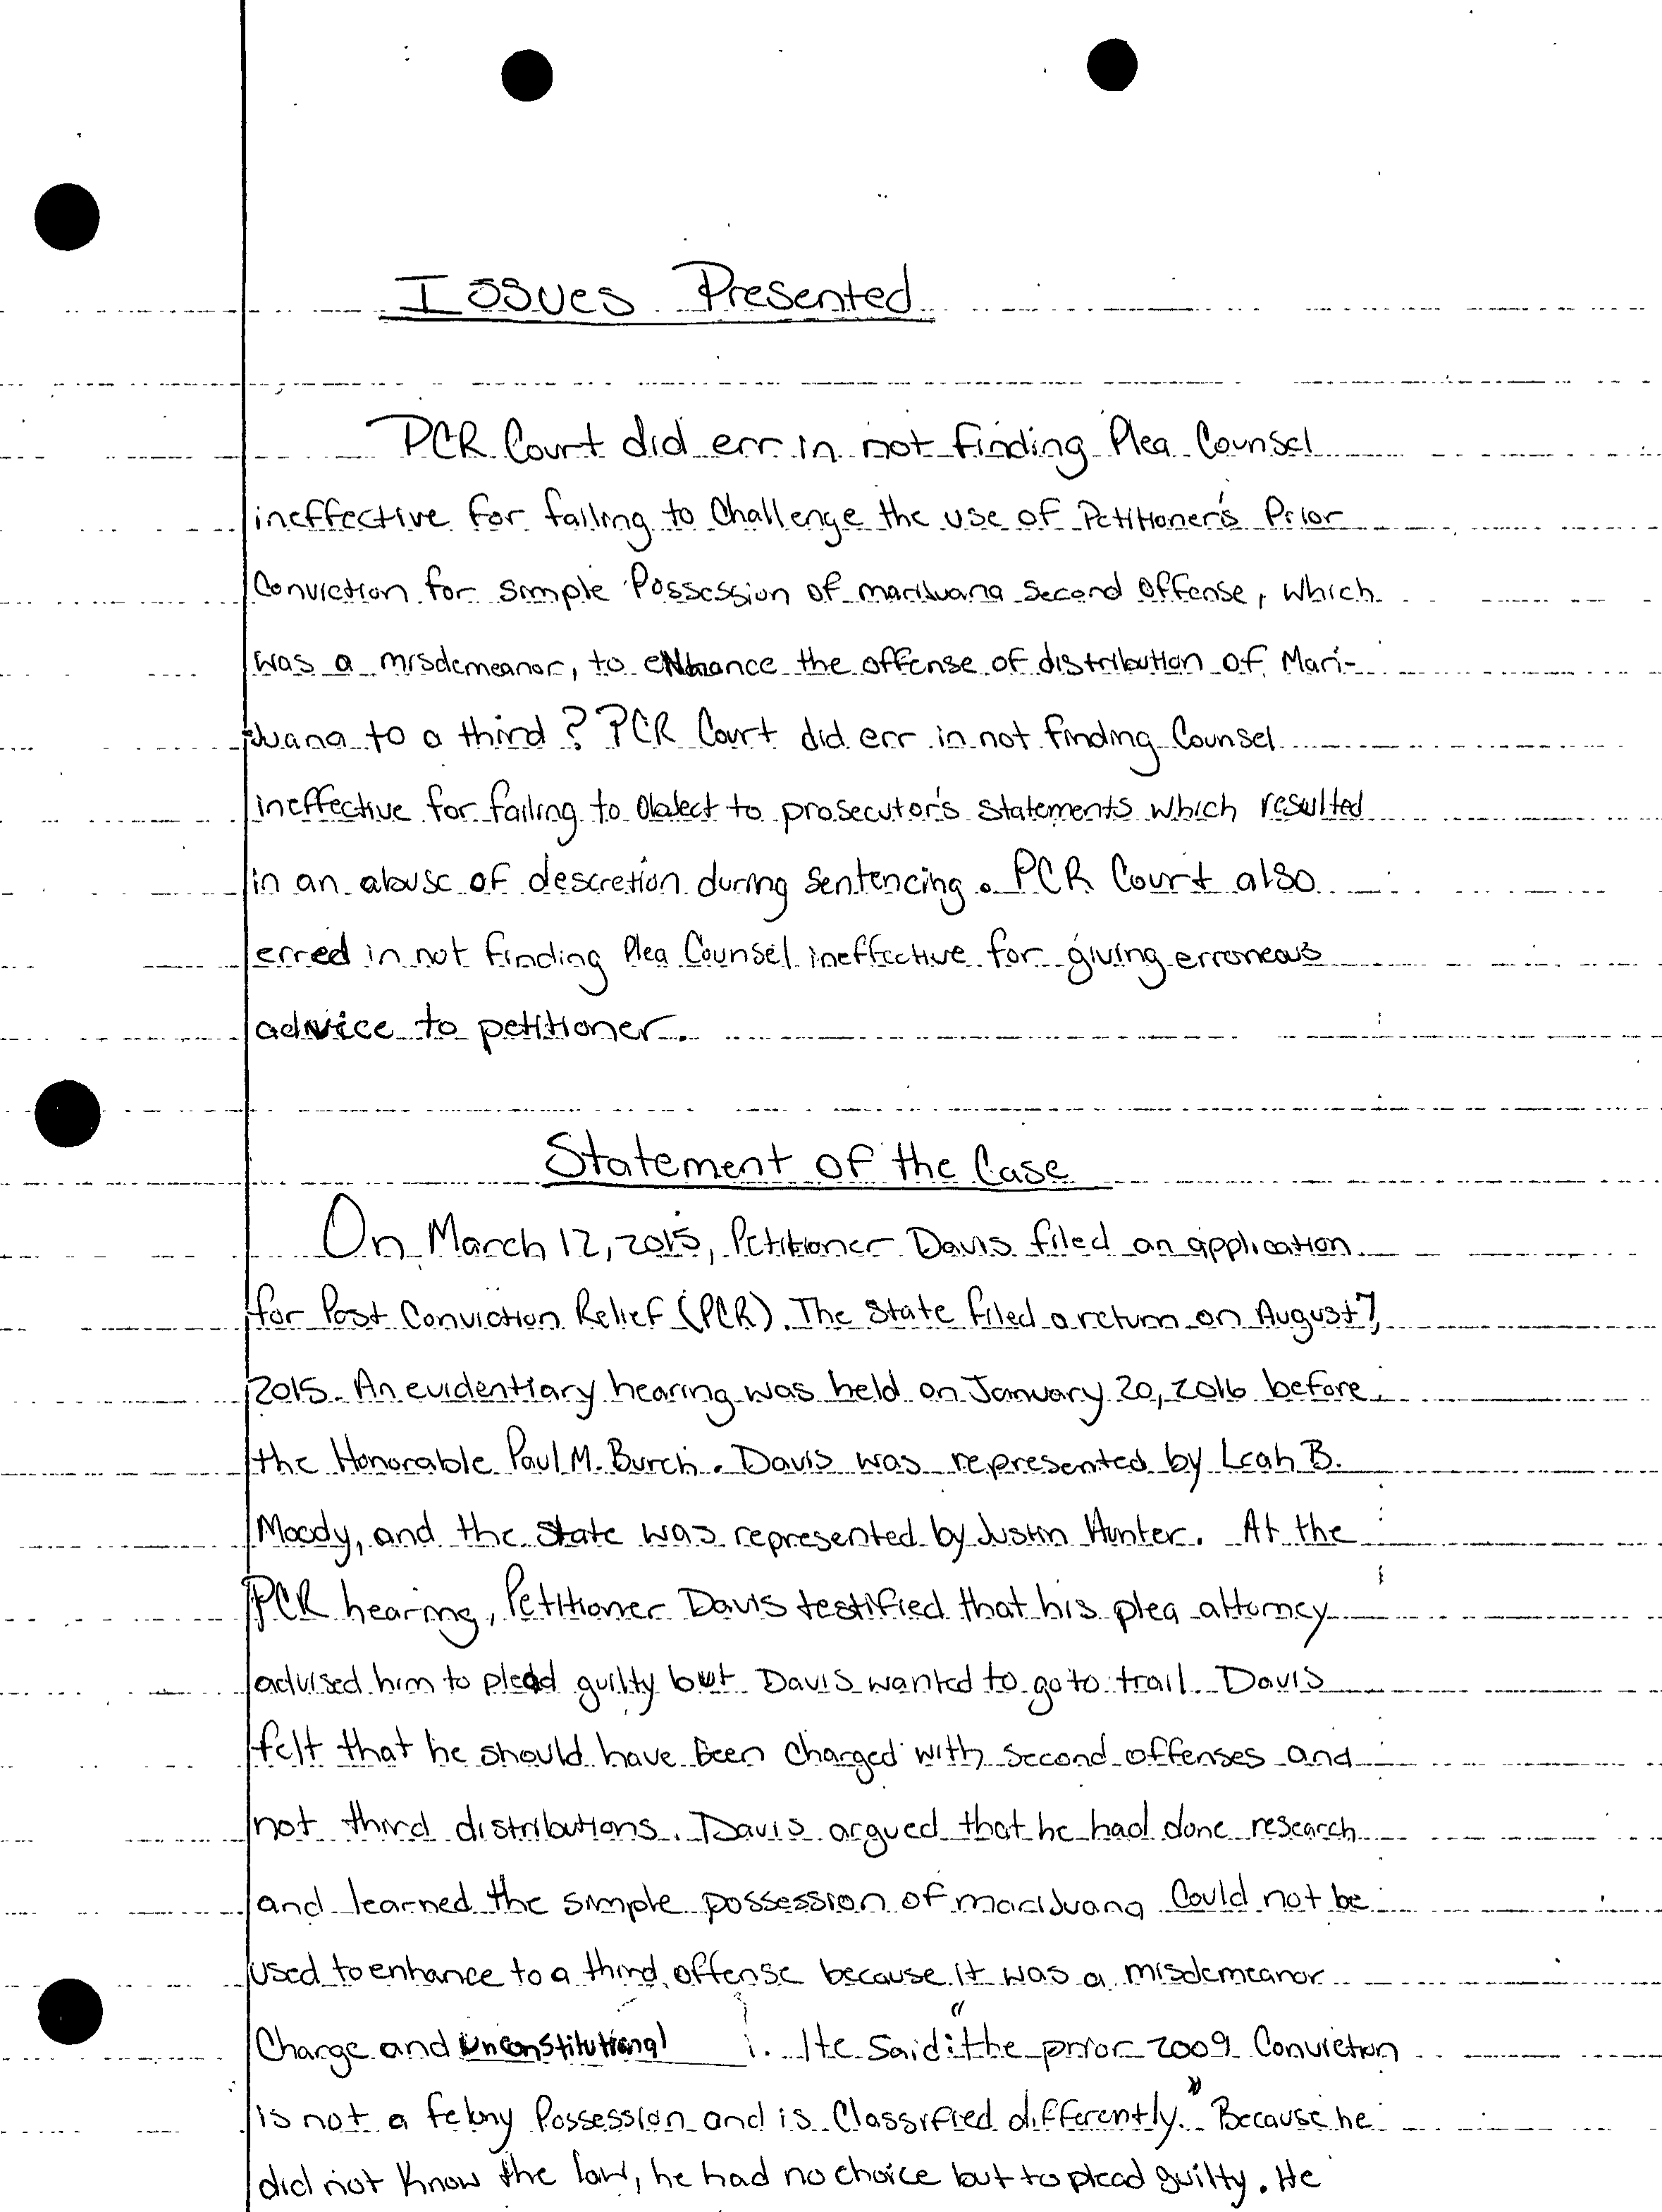 Issues Presented
PCR Court did err in not finding Plea Counsel
ineffective for failing to Challenge the use of Petitioner's Prior
Conviction for simple Possession of marijuana second offense, which
was a misdemeanor, to eNhance the offense of distribution of Mari-
juana to a third? PCR Court did err in not finding Counsel
ineffective for failing to object to prosecutor's statements which resulted
in an abuse of descretion during sentencing. PCR Court also
erred in not finding Plea Counsel ineffective for giving erroneous
advice to petitioner.
Statement of the Case
On March 12, 2015, Petitioner Davis filed an application
for Post Conviction Relief (PCR). The State filed a return on August 7,
2015. An evidentiary hearing was held on January 20, 2016 before
the Honorable Paul M. Burch. Davis was represented by Leah B.
Moody, and the State was represented by Justin Hunter. At the
PCR hearing, Petitioner Davis testified that his plea attorney
advised him to plead guilty but Davis wanted to go to trail. Davis
felt that he should have been charged with second offenses and
not third distributions. Davis argued that he had done research
and learned the simple possession of marijuana Could not be
used to enhance to a third offense because it was a misdemeanor
Charge and Unconstitutional. He said "the prior 2009 Conviction
is not a felony Possession and is Classified differently." Because he
did not know the law, he had no choice but to plead guilty. He